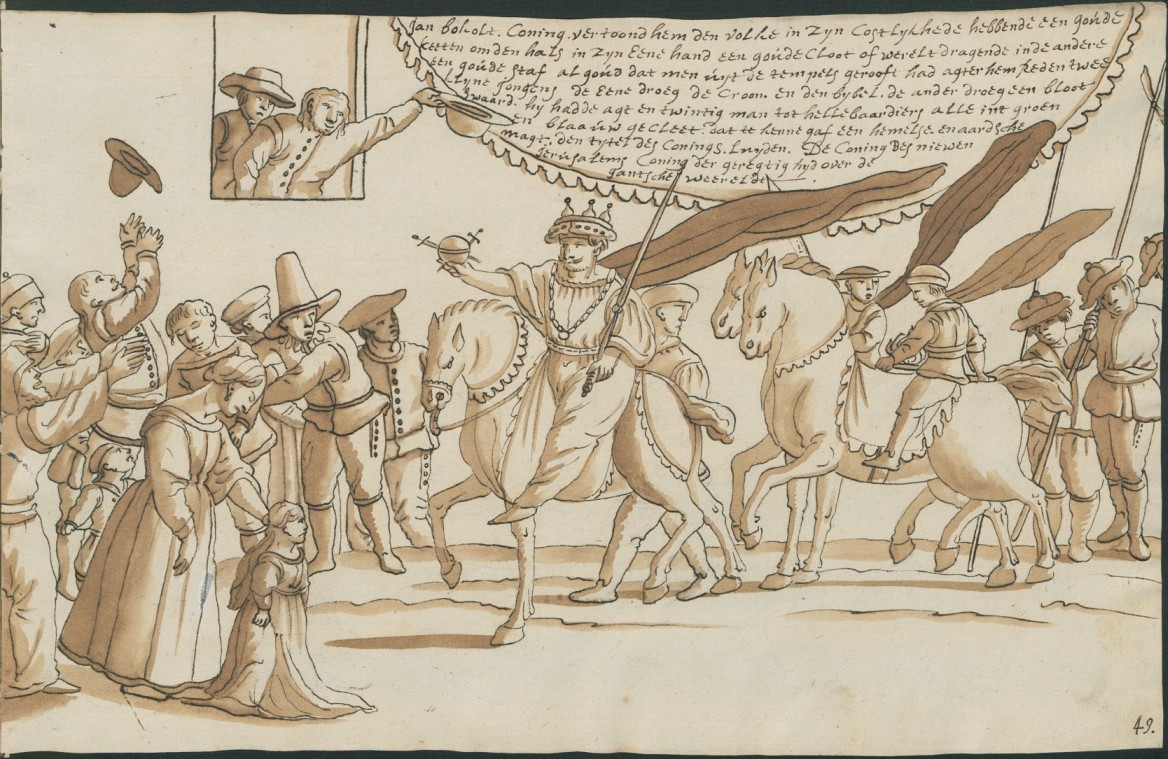 Jan bokolt. Coning. vertoond hem den volke in zyn Costlykhede hebbende een goúde
keeten om den hals in zyn Eene hand een goúde Cloot of werelt dragende inde andere
een goúde staf al goúd dat men úÿt de tempels gerooft had agter hem Reden twee
Jongens de Eene droeg de Croon. en den bybel. de ander droeg een bloot
Swaard. hy hadde agt en twintig man tot hellebaardiers alle int groen
en blaaúw gecleet. dat te kenne gaf een hemelse en aardsche
magt. den tytel des Conings. Luyden. De Coning Des niewen
Jerusalems Coning der geregtighyd over de
gantsche weereldt.
49.